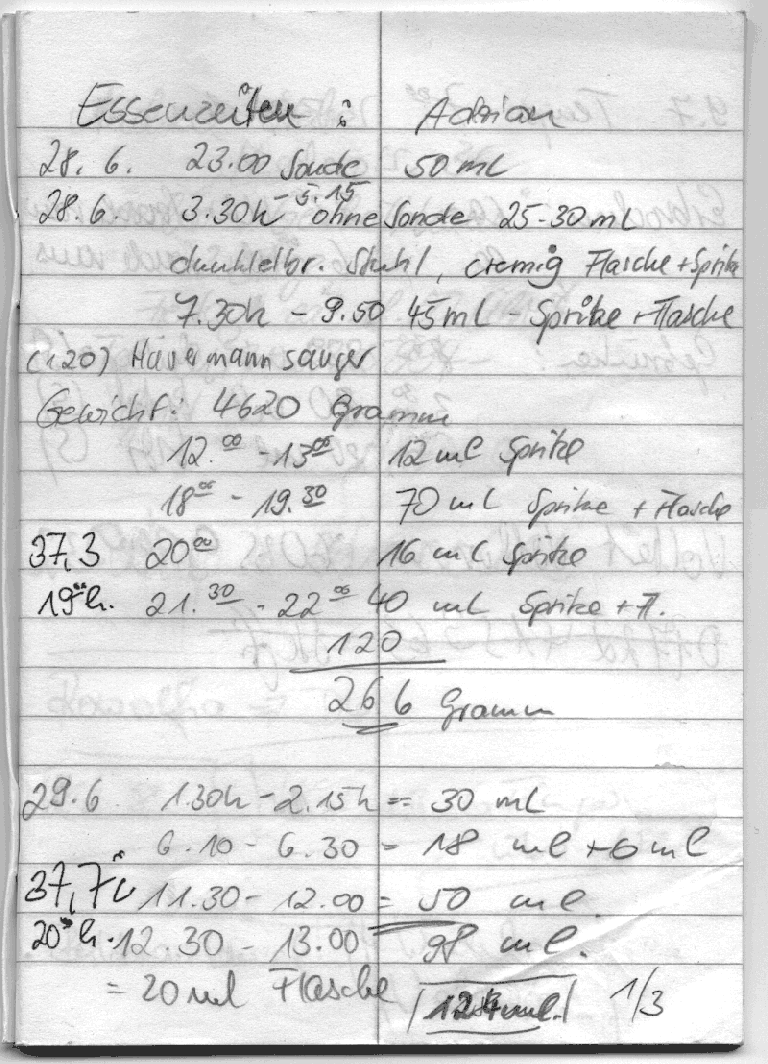 Essenzeiten : Adrian
28. 6. 23.00 Sonde 50 ml
28.6. 3.30h - 5.15 ohne Sonde 25-30 ml
dunkelbr. Stuhl, cremig Flasche + Spritze
7.30h - 9.50 45 ml - Spritze + Flasche
(120) Havermannsauger
Gewicht: 4620 Gramm
12.00 - 13.00 12 ml Spritze
18.00 - 19.30 70 ml Spritze + Flasche
37,3 20.00 16 ml Spritze
19.00 h. 21.30 - 22.00 40 ml Spritze + Fl.
120
266 Gramm
29.6 1.30h - 2.15h = 30 ml
6.10 - 6.30 - 18 ml + 6 ml
37,7 11.30 - 12.00 = 50 ml.
h. 12.30 - 13.00 98 ml.
= 20 ml Flasche ml. 1/3